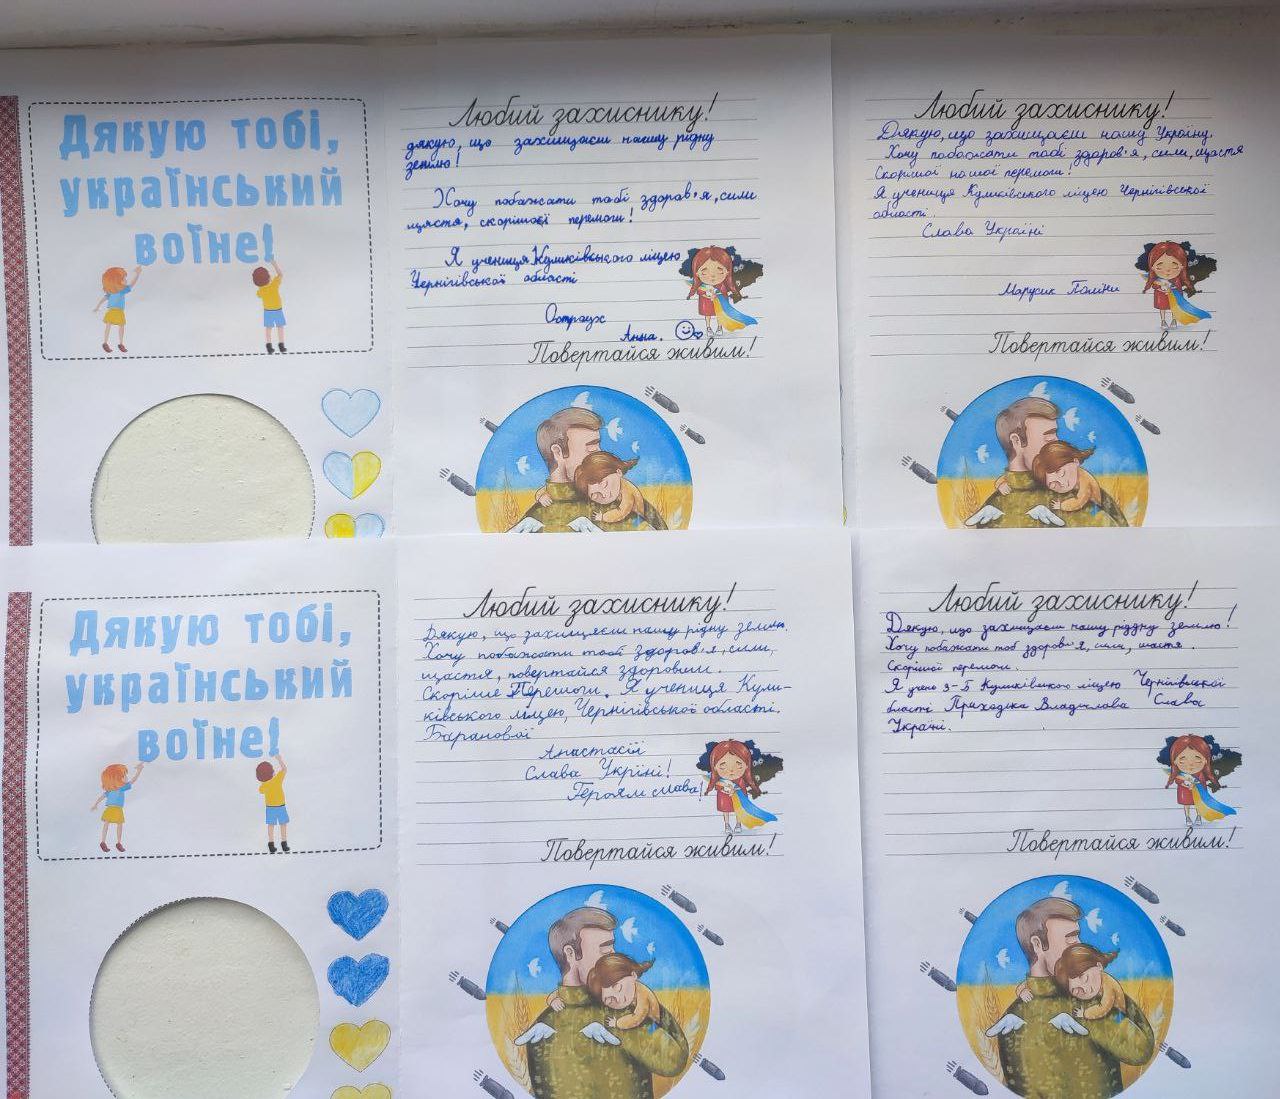 Дякую тобі,
український
воїне!
Любий захиснику!
дякую, що захищаєш нашу рідну
землю!
Хочу побажати тобі здоров'я, сили
щастя, скорішої перемоги!
Я учениця Куликівського ліцею
Чернігівської області
Остраух
Анна.
Повертайся живим!
Любий захиснику!
Дякую, що захищаєш нашу Україну.
Хочу побажати тобі здоров'я, сили, щастя
Скорішої нашої перемоги!
Я учениця Куликівського ліцею Чернігівської
області.
Слава Україні
Марусик Поліни
Повертайся живим!
Дякую тобі,
український
воїне!
Любий захиснику!
Дякую, що захищяєш нашу рідну землю.
Хочу побажати тобі здоров'я, сили,
щастя, повертайся здоровим.
Скоріше Перемоги. Я учениця Кули-
ківського ліцею, Чернігівської області.
Баранової
Анастасії
Слава Укріні!
Героям слава!
Повертайся живим!
Любий захиснику!
Дякую, що захищаєш нашу ріддну землю!
Хочу побажати тоб здоров'я, сили, щастя.
Скорішої перемоги.
Я учень 3-Б Куликівського ліцею Чернігівської
бласті Приходька Владислава Слава
Україні.
Повертайся живим!